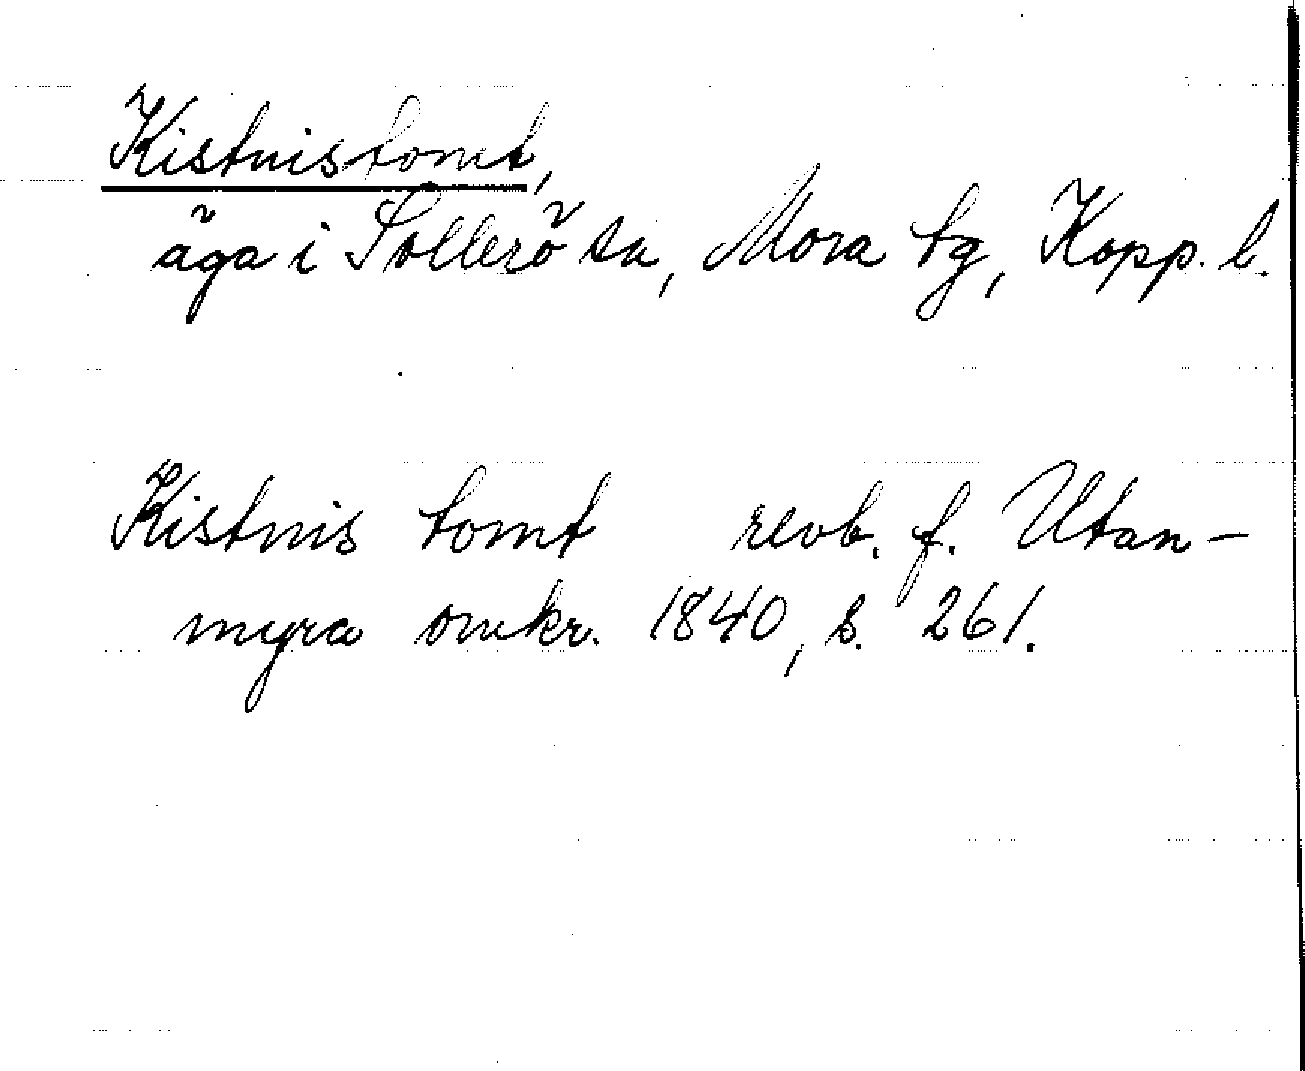 Kistnistomt,
äga i Sollerö sn, Mora tg, Kopp. l.
Kistnis tomt revb. f. Utan-
myra omkr. 1840, s. 261.